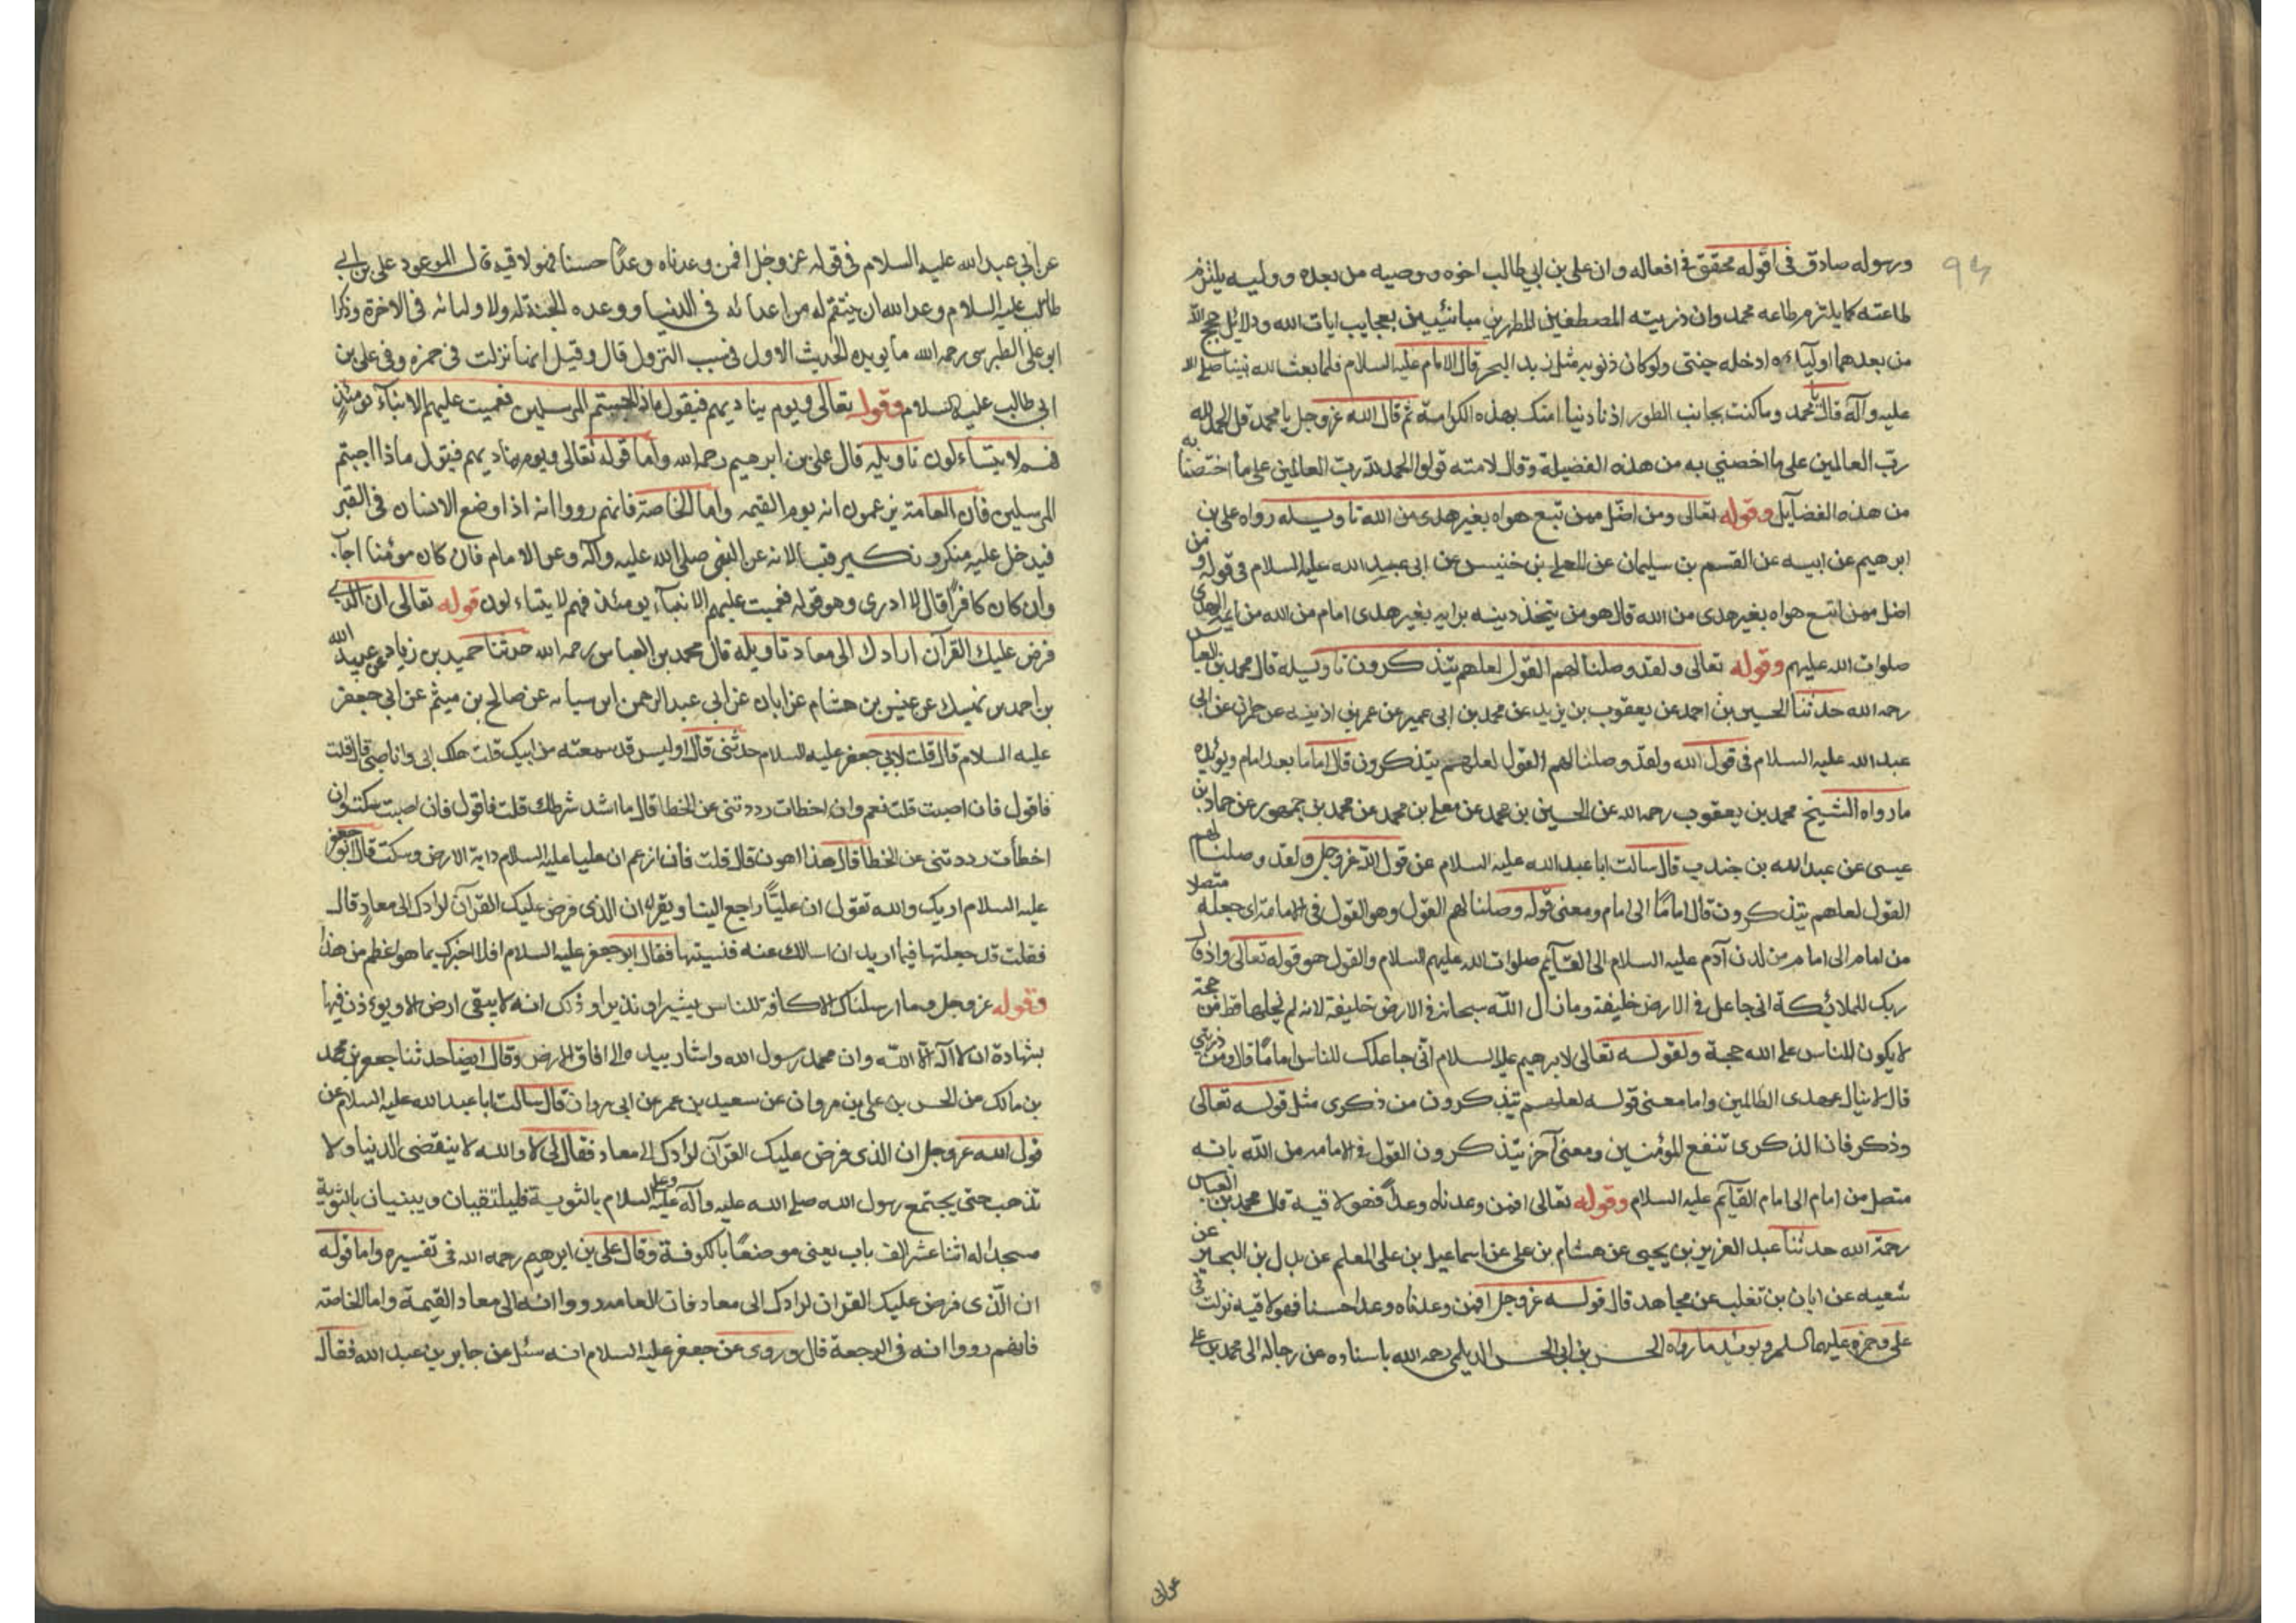 ٩٤
ورسوله صادق فى اقوله محقق فى افعاله وان على بن ابي طالب اخوه ووصيه من بعده ووليه يلتزم
طاعته كما يلتزم طاعه محمد وان ذريته المصطفين المطهرين مبائنين بعجايب ايات الله ودلائل حجج الله
من بعدهما اوليآءه ادخله جنتى ولو كان ذنوبه مثل زبد البحر قال الامام عليه السلام فلما بعث الله نبينا صلى الله
عليه وآله قال يا محمد وما كنت بجانب الطور اذ نادينا امتك بهذه الكرامة ثم قال الله عزوجل يا محمد قل الحمد لله
ربّ العالمين على ما اخصني به من هذه الفضيلة وقال لامته قولوا الحمد لله ربّ العالمين على ما اختصنا به
من هذه الفضآيل وقوله تعالى ومن اضل ممن تبع هواه بغير هدى من الله تاويله رواه على بن
ابرهيم عن ابيه عن القسم بن سليمان عن المعلى بن خنيس عن ابى عبد الله عليه السلام فى قوله ومن
اضل ممن اتبع هواه بغير هدى من الله قال هو من يتخذ دينه برايه بغير هدى امام من الله من ايمة الهدى
صلوات الله عليهم وقوله تعالى ولقد وصلنا لهم القول لعلهم يتذكرون تاويله قال محمد بن العباس
رحمه الله حدثنا الحسين بن احمد عن يعقوب بن يزيد عن محمد بن ابى عمير عن عمر بن اذينه عن حمران عن ابى
عبد الله عليه السلام فى قول الله ولقد وصلنا لهم القول لعلهم يتذكرون قال اماما بعد امام ويؤيده
ما رواه الشيخ محمد بن يعقوب رحمه الله عن الحسين بن محمد عن معلى بن محمد عن محمد بن جمهور عن حماد بن
عيسى عن عبد الله بن جندب قال سالت ابا عبد الله عليه السلام عن قول الله عزوجل ولقد وصلنا لهم
القول لعلهم يتذكرون قال امامًا الى امام ومعنى قوله وصلنا لهم القول وهو القول فى الامامة اى جعله متصلا
من امام الى امام من لدن آدم عليه السلام الى القآيم صلوات الله عليهم السلام والقول هو قوله تعالى واذ قال
ربك للملائكة انى جاعل فى الارض خليفة وما زال الله سبحانه فى الارض خليفة لانه لم يخلها قط من حجة
لا يكون للناس على الله حجة ولقوله تعالى لابرهيم عليه السلام انّى جاعلك للناس امامًا قال ومن ذريتي
قال لا ينال عهدى الظالمين واما معنى قوله لعلهم يتذكرون من ذكرى مثل قوله تعالى
وذكر فان الذكرى تنفع المؤمنين ومعنى آخر يتذكرون القول فى الامامه من الله بانه
متصل من امام الى امام القآيم عليه السلام وقوله تعالى افمن وعدناه وعداً فهو لاقيه قال محمد بن العباس
رحمة الله حدثنا عبد العزيز بن يحيى عن هشام بن على عن اسماعيل بن على المعلم عن بدل بن البحير عن
شعبه عن ابان بن تغلب عن مجاهد قال قوله عزوجل افمن وعدناه وعدا حسنا فهو لاقيه نزلت فى
على وحمزه عليهما السلم ويؤيده ما رواه الحسن بن ابى الحسن الديلمى رحمه الله باسناده عن رجاله الى محمد بن على
عن ابى
عن ابى عبد الله عليه السلام فى قوله عز وجل افمن وعدناه وعدًا حسنا فهو لاقيه قال الموعود على بن ابي
طالب عليه السلام وعد الله ان ينتقم له من اعدائه فى الدنيا ووعده الجنة له ولاوليائه فى الاخرة وذكر
ابو على الطبرسى رحمه الله ما يويده الحديث الاول فى سبب النزول قال وقيل انما نزلت فى حمزه وفى على بن
ابى طالب عليه السلام وقوله تعالى ويوم يناديهم فيقول ماذا اجبتم المرسلين فعميت عليهم الانبآء يومئذٍ
فهم لا يتساءلون تاويله قال على بن ابرهيم رحمه الله واما قوله تعالى ويوم يناديهم فيقول ماذا اجبتم
المرسلين فان العامة يزعمون انه يوم القيمه واما الخاصة فانهم رووا انه اذا وضع الانسان فى القبر
فيدخل عليه منكر ونكير فيسالانه عن النبى صلى الله عليه وآله وعن الامام فان كان مؤمنا اجآب
وان كان كافرًا قال لا ادرى وهو قوله فعميت عليهم الانبآء يومئذ فهم لا يتساءلون قوله تعالى ان الذى
فرض عليك القرآن لرادك الى معاد تاويله قال محمد بن العباس رحمه الله حدثنا حميد بن زياد عن عبيد الله
بن احمد بن نهيك عن عيس بن هشام عن ابان عن ابى عبد الرحمن ابن سيابه عن صالح بن ميثم عن ابى جعفر
عليه السلام قال قلت لابي جعفر عليه السلام حدثنى قال اوليس قد سمعته من ابيك قلت هلك ابى وانا صبي قال قلت
فاقول فان اصبت قلت نعم وان اخطات رددتنى عن الخطا قال ما اشد شرطك قلت فاقول فان اصبت سكت وان
اخطأت رددتنى عن الخطا قال هذا اهون قال قلت فان ازعم ان عليا عليه السلام دابة الارض وسكت قال ابو جعفر
عليه السلام اريك والله تقول ان عليًّا راجع الينا ويقرا ان الذى فرض عليك القرآن لرادك الى معادٍ قال
فقلت قد جعلتها فيما اريد ان اسالك عنه فنسيتها فقال ابو جعفر عليه السلام افلا اخبرك بما هو اعظم من هذا
وقوله عزوجل وما ارسلناك الا كافة للناس بشيرا ونذيرا وذلك انه لا يبقى ارض الا ويوءذن فيها
بشهادة ان لا اله الا الله وان محمد رسول الله واشار بيده الى افاق الارض وقال ايضا حدثنا جعفر بن محمد
بن مالك عن الحسن بن على بن مروان عن سعيد بن عمر عن ابى مروان قال سالت ابا عبد الله عليه السلام عن
قول الله عزوجل ان الذى فرض عليك القرآن لرادك الى معاد فقال لى لا والله لا ينقضى الدنيا ولا
تذهب حتى يجتمع رسول الله صلى الله عليه وآله وعلى عليه السلام بالثوية فيلتقيان ويبنيان بالثوية
مسجدا له اثنا عشر الف باب يعنى موضعًا بالكوفة وقال على بن ابرهيم رحمه الله فى تفسيره واما قوله
ان الذى فرض عليك القران لرادك الى معاد فان العامه رووا انه الى معاد القيمة واما الخاصة
فانهم رووا انه فى الرجعة قال وروى عن جعفر عليه السلام انه سئل عن جابر بن عبد الله فقال